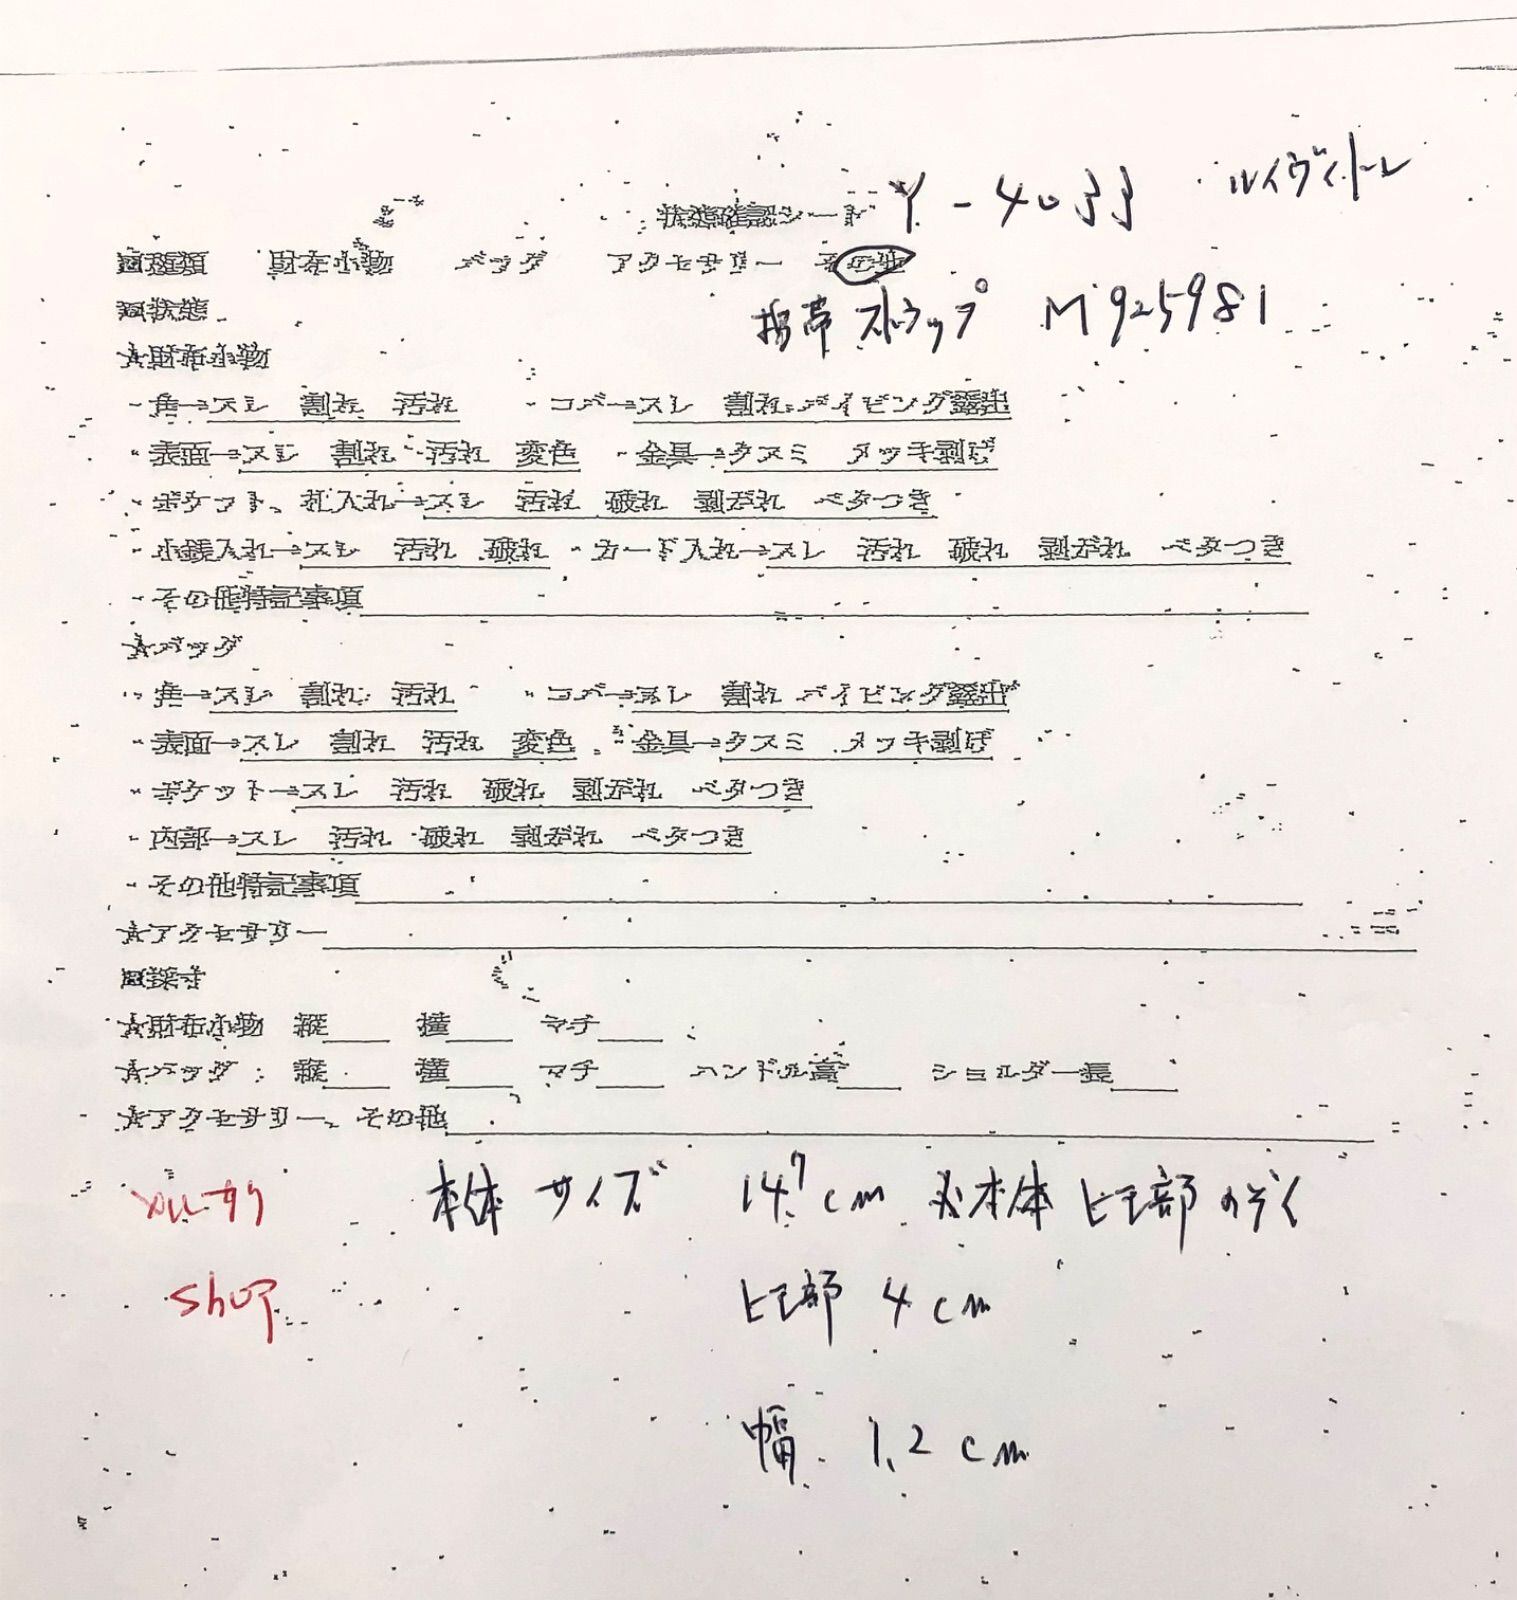 状態確認シート Y-4033 ルイヴィトン
□種類 財布小物 バッグ アクセサリー その他
□状態
携帯ストラップ M925981
☆財布小物
・角→スレ 割れ 汚れ ・コバ→スレ 割れ パイピング露出
・表面→スレ 割れ 汚れ 変色 ・金具→クスミ メッキ剥げ
・ポケット、札入れ→スレ 汚れ 破れ 剥がれ ベタつき
・小銭入れ→スレ 汚れ 破れ ・カード入れ→スレ 汚れ 破れ 剥がれ ベタつき
・その他特記事項
☆バッグ
・角→スレ 割れ 汚れ ・コバ→スレ 割れ パイピング露出
・表面→スレ 割れ 汚れ 変色 ・金具→クスミ メッキ剥げ
・ポケット→スレ 汚れ 破れ 剥がれ ベタつき
・内部→スレ 汚れ 破れ 剥がれ ベタつき
・その他特記事項
☆アクセサリー
□採寸
☆財布小物 縦 横 マチ
☆バッグ: 縦 横 マチ ハンドル高 ショルダー長
☆アクセサリー、その他
本体サイズ 14.7cm ※本体ヒモ部のぞく
shop ヒモ部 4cm
幅 1.2cm